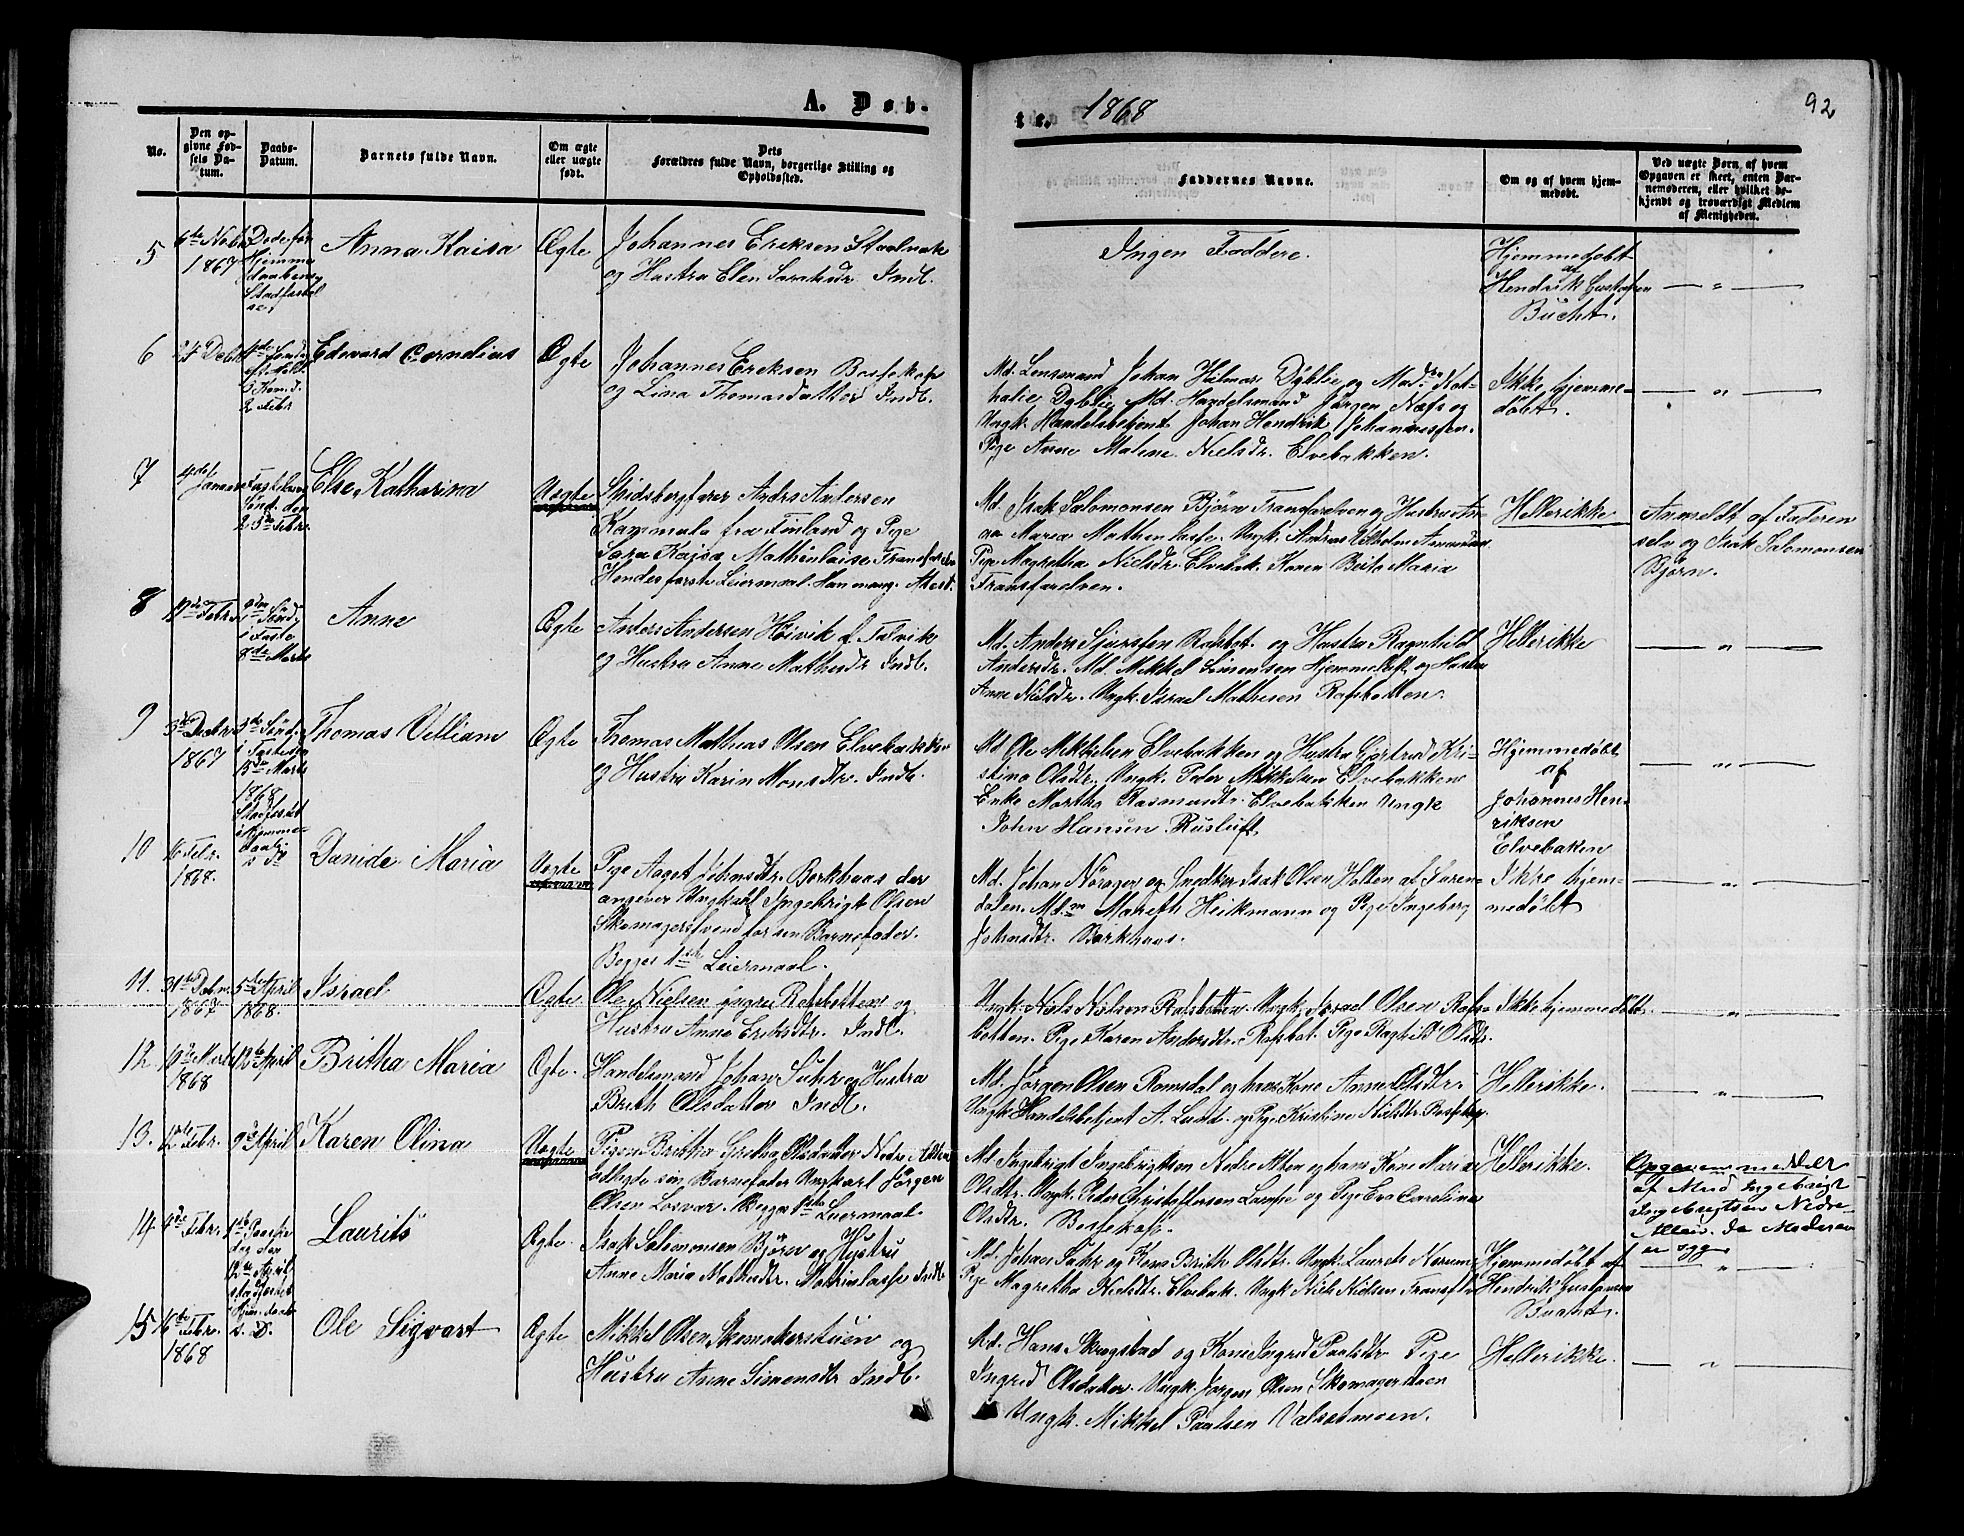 A. Døb-
te.
1868
92
No.
Den op-
givne Fød-
sels Da-
tum.
Daabs-
Datum.
Barnets fulde Navn.
Om ægte
eller uægte
født.
Dets
Forældres fulde Navn, borgerlige Stilling og
Opholdssted.
Faddernes Navne.
Om og af hvem hjem-
medøbt.
Ved uægte Børn, af hvem
Opgaven er skeet, enten Bar-
nemoderen, eller hvilket be-
kjendt og troværdigt Medlem
af Menigheden.
5
6te Novbr
1867
Anna Kaisa
Ægte
Johannes Ereksen
og Hustru Elen Indb.
Ingen Faddere.
Hjemmedøbt
af
Hendrik Gustafsen
Bucht.
6
Edevard Cornelius
Ægte
Johannes Ereksen Bossekop
og Lina Thomasdatter Indb.
Md. Lensmand Johan Hilmar Dyblie og Mad. Nat-
halie Dyblie, Md. Handelsmand Jørgen Næss og
Ungk. Handelsbetjent Johan Hendrik Johannessen.
Pige Anne Malene Nielsdr. Elvebakken.
Ikke hjemme-
døbt.
7
4de
Januar
Fastelavns
Sønd. den
23de Febr.
Else Katharina
Uægte
Anders Andersen
fra Finland og Pige
Sara Kajsa
Hendes første Leiermaal. Han mang. Attest.
Md. Isak Salomonsen Bjørn Transfarelven og Hustru An-
na Maria
Pige Magretha Nielsdr. Elvebak. Karen Brita Maria
Transfarelven.
Hellerikke
Anmeldt af Faderen
selv og Isak Salomonsen
Bjørn.
8
Febr.
8de Marts
Anne
Ægte
Anders Andersen Høivik
og Hustru Anne Mathisdr Indb.
Md. Anders Rafsbot. og Hustru Ragnhild
Andersdr. Md. Mikkel Simensen og Hustru
Anne Nielsdr. Ungk. Israel Mathisen Rafsbotten.
Hellerikke
9
1867
1868
Thomas Villiam
Ægte
Thomas Mathias Olsen Elvebakken
og Hustru Karin Monsdtr. Indb.
Md Ole Mikkelsen Elvebakken og Hustru Gjertrud Kri-
stina Olsdtr. Ungk. Peder Mikkelsen Elvebakken
Enke Martha Rasmusdtr. Elvebakken Ungk
John Hansen Rusluft.
Hjemmedøbt
af
Johannes Hen-
riksen
Elvebakken
10
16 Febr.
1868.
Danide Maria
Uægte
Pige Aaget Johnsdtr. Borkhuus der
angiver Ungkarl Ingebrigt Olsen
Skomagersvend for sin Barnefader.
Begges 1ste Leiermaal.
Md. Johan Nørager og Snedker Isak Olsen Holten af Suren-
dalen. Md. Mareth Heikmann og Pige Ingeborg
Johnsdtr. Borkhuus.
Ikke hjem-
medøbt
11.
31te
1867
5te April
1868.
Israel
Ægte
Ole Nielsen yngre Rafsbotten og
Hustru Anne Eriksdtr. Indb.
Ungk. Niels Nielsen Rafsbotten Ungk. Israel Olsen Rafs-
botten. Pige Karen Andersdtr. Rafsbot. Pige Ragnild Olsdtr.
Ikke hjemmedøbt.
12.
1868
12te April
Britha Maria
Ægte.
Handelsmand Johan Suhr og Hustru
Brith Olsdatter Indb.
Md. Jørgen Olsen Romsdal og hans Kone Anne Olsdtr.
Ungk. Handelsbetjent A. Lund. og Pige Kristine Nielsdtr. Bossekop.
Hellerikke.
13.
12te Febr.
9de April
Karen Olina
Uægte
Pigen Britha Gretha Olsdatter Nedre Alten
udlagte sin Barnefader Ungkarl Jørgen
Olsen Losvar. Begges 1ste Leiermaal.
Md Ingebrigt Ingebrigtsen Nedre Alten og hans Kone Maria
Olsdtr. Ungk. Peder Christophersen Lampe og Pige Eva Carolina
Olsdtr. Bossekop.
Hellerikke.
Opgaven meddelt
af Md Ingebrigt
Ingebrigtsen Nedre
Alten, da Moderen
er syg.
14.
Febr.
1ste Paaske
dag den
12te April
Laurits
Ægte.
Isak Salomonsen Bjørn og Hustru
Anne Maria Mathisdtr. Indb.
Md. Johan Suhr og Kone Brith Olsdtr. Ungk. Laurits Norum
Pige Magretha Nielsdtr Elvebak. Ungk Niels Nielsen
Hjemmedøbt af
Hendrik Gustavsen
Bucht.
15
16te
Febr.
1868
Ole Sigvart
Ægte
Mikkel Olsen Skomakerstuen og
Hustru Anne Simensdtr Indb.
Md. Hans Skogstad og Kone Ingrid Paalsdtr Pige
Ingrid Olsdatter. Ungk. Jørgen Olsen Skomagerstuen
Ungk. Mikkel Paalsen Valsetmoen.
Hellerikke.